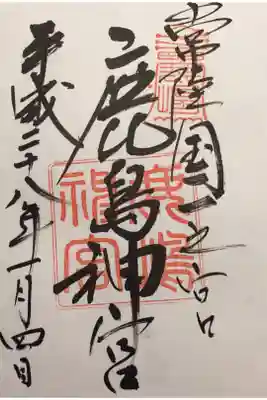 常陸国一之宮
鹿島神宮
平成二十八年一月四日
鹿島
神宮